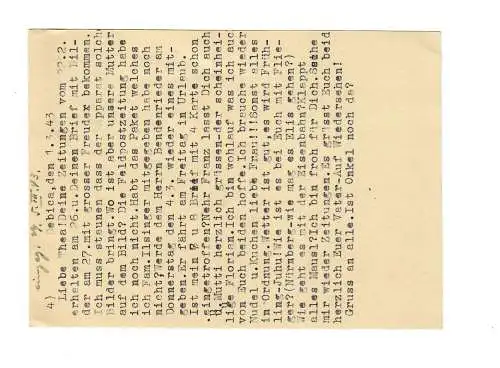 4) Debica, den 1.3.43
Liebe Thea! Deine Zeitungen vom 22.2.
erhalten am 26. u. Deinen Brief mit Bil-
der am 27. mit grosser Freudex bekommen.
Ich muss staunen dass Dein Apparat solche
Bilder bringt. Wo ist aber unsere Mutter
auf dem Bild? Die Feldpostzeitung habe
ich noch nicht. Habt das Paket welches
ich Fam. Ilsinger mitgegeben habe noch
nicht? Werde dem Herrn Bendenrieder am
Donnerstag den 4.3. wieder eines mit-
geben. Er fährt am Freitag in Urlaub.
Ist mein 7 u 8 Brief mit 4 Karte schon
eingetroffen? Nehr Franz lässt Dich auch
u. Mutti herzlich grüssen-der scheinhei-
lige Florian. Ich bin wohlauf was ich auch
von Euch beiden hoffe. Ich brauche wieder
Nudel u. Kuchen liebe Frau!!! Sonst alles
in Ordnung. Wetter ist gut es wird Früh-
ling-Juhu! Wie ist es bei Euch mit Flie-
ger? (Nürnberg, wie mag es Elis gehen?)
Wie geht es mit der Eisenbahn? Klappt
alles Mausi? Ich bin froh für Dich. Sende
mir wieder Zeitungen. Es grüsst Euch beid
herzlich Euer Vater-Auf Wiedersehen!
Gruss an alle. Ist Onkel noch da?